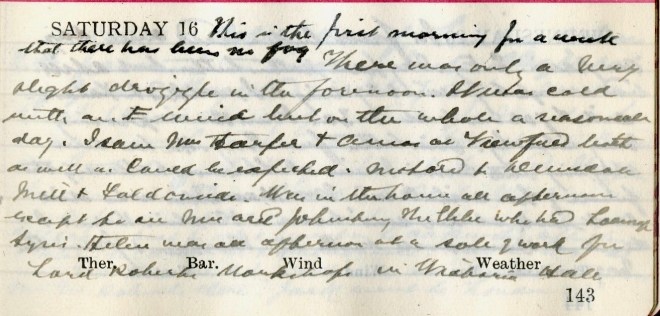 SATURDAY 16 This is the first morning for a week
that there has been no fog There was only a very
slight drizzle in the forenoon. It was cold
with an E wind but on the whole a seasonable
day. I saw Mrs & at both
as well as could be expected. Motored to
Mill & . Was in the house all afternoon
except to see Mrs and who had
. Helen was all afternoon at a sale of work for
Lord Roberts Workshops in Victoria Hall
Ther. Bar. Wind Weather
143